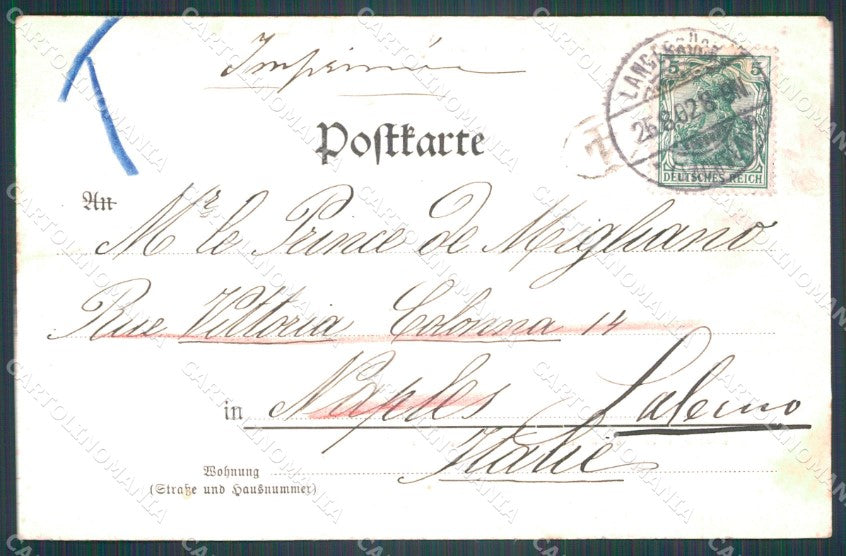 Imprimée
Postkarte
5 5
LANGEBRÜCK
26.8.02.8-9N
DEUTSCHES REICH
T
An
Mr. le Prince de Migliano
Rue Vittoria Colonna 14
in Naples Salerno
Italie
Wohnung
(Straße und Hausnummer)
CARTOLINOMANIA